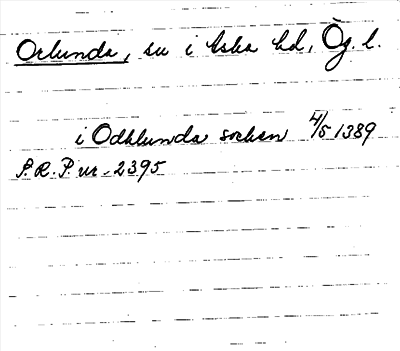 Orlunda, sn i Aska hd, Ög. l.
i Odhlunda sochen 4/5 1389
S.R.P. nr. 2395